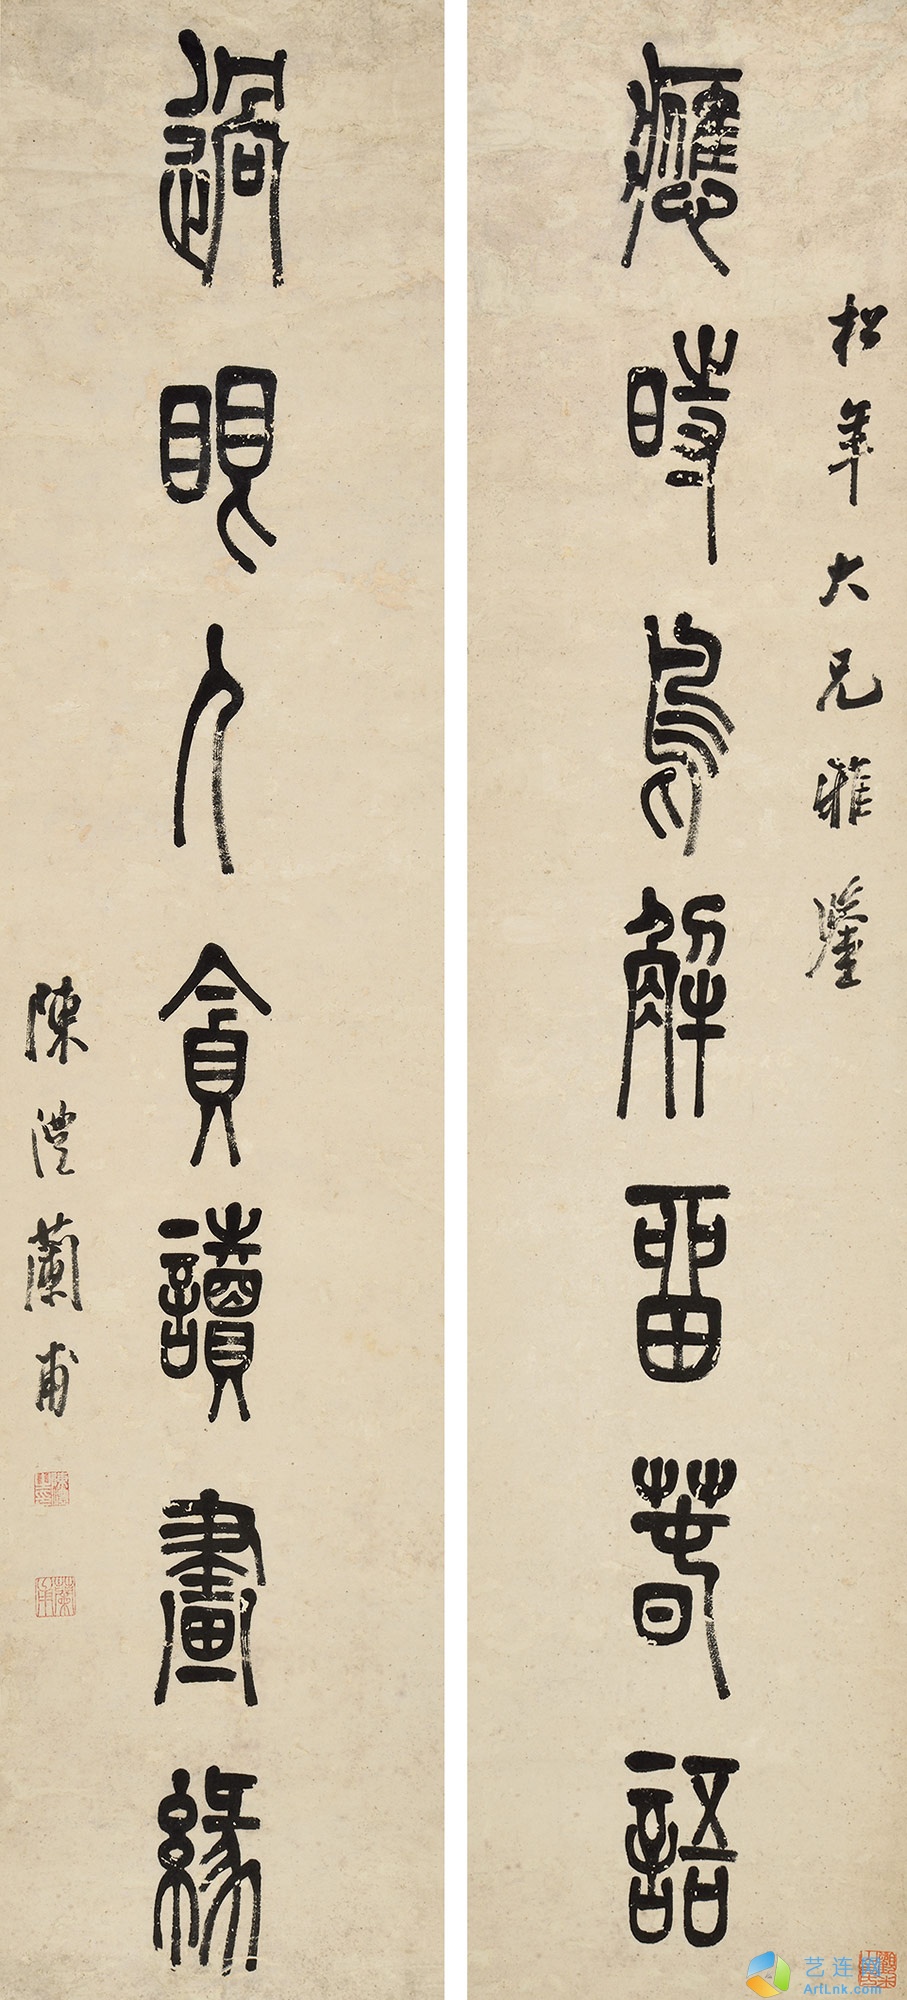 松年大兄雅鑒
應時鳥解留春語
過眼人貪讀畫緣
陳澧蘭甫
艺连网
ArtLnk.com